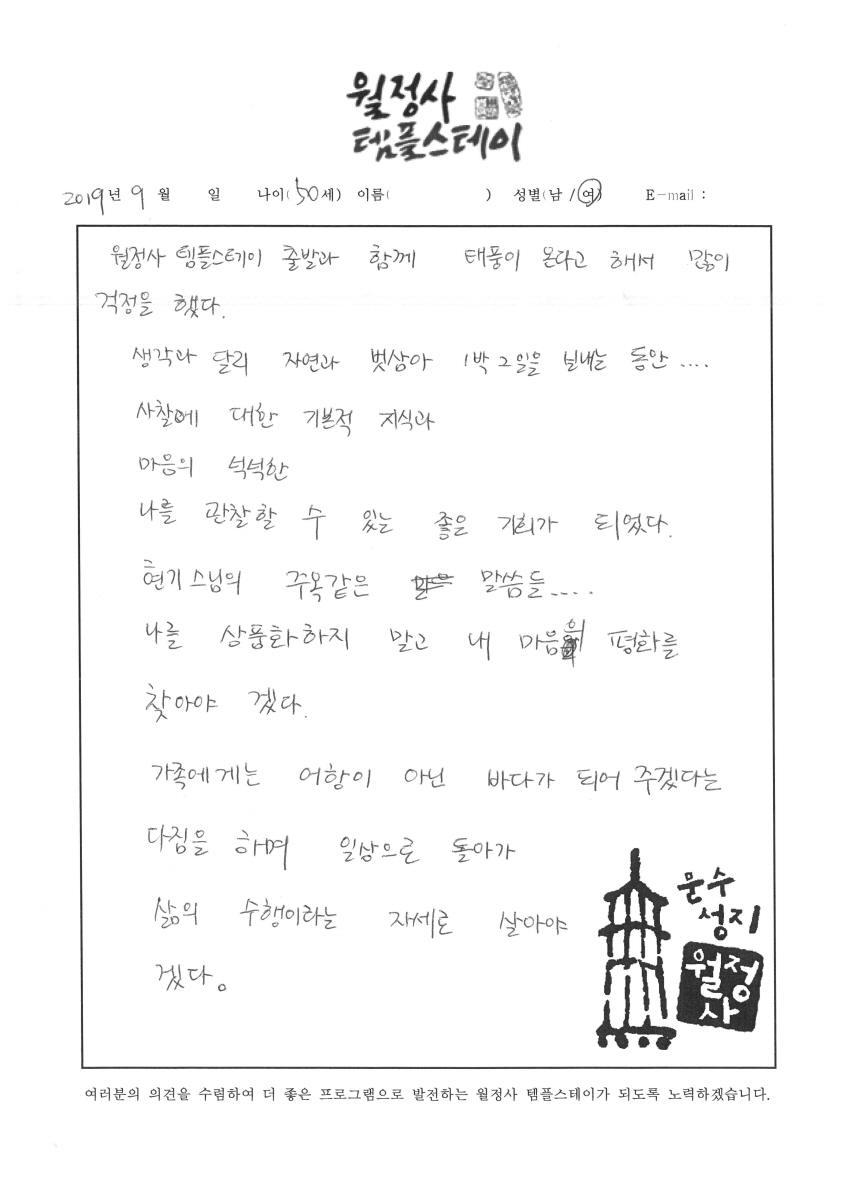 월정사
템플스테이
2019년 9월 일 나이(50세) 이름( ) 성별(남 / 여) E-mail :
월정사 템플스테이 출발과 함께 태풍이 온다고 해서 많이
걱정을 했다.
생각과 달리 자연과 벗삼아 1박 2일을 보내는 동안 ....
사찰에 대한 기본적 지식과
마음의 넉넉한
나를 관찰할 수 있는 좋은 기회가 되었다.
현기스님의 주옥같은 말씀들....
나를 상품화하지 말고 내 마음의 평화를
찾아야 겠다.
가족에게는 어항이 아닌 바다가 되어 주겠다는
다짐을 하며 일상으로 돌아가
삶의 수행이라는 자세로 살아야
겠다.
문수
성지
월정
사
여러분의 의견을 수렴하여 더 좋은 프로그램으로 발전하는 월정사 템플스테이가 되도록 노력하겠습니다.